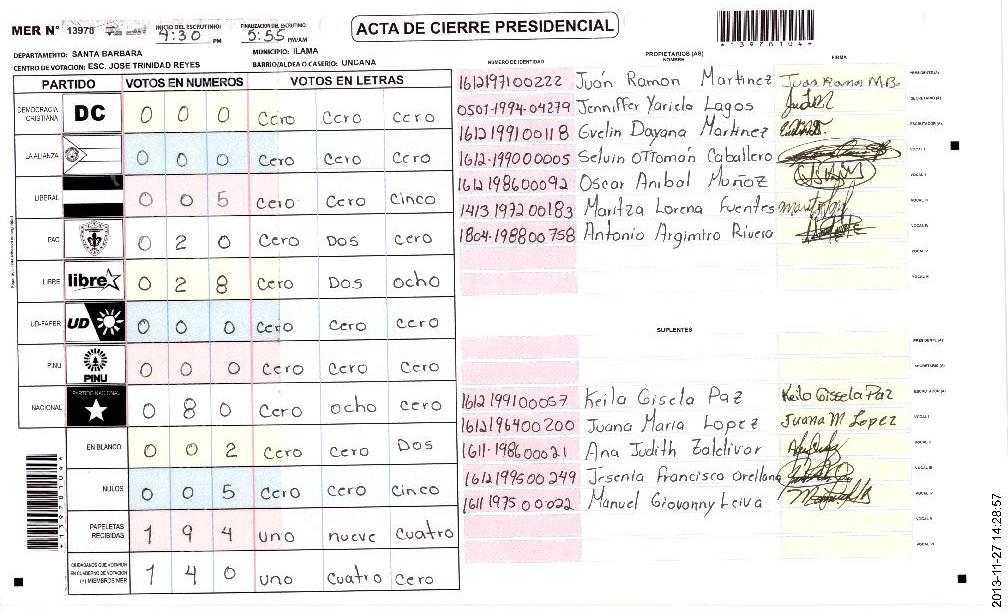 MER N° 13978
INICIO DEL ESCRUTINIO: 4:30 PM
FINALIZACION DEL ESCRUTINIO: 5:55 PM/AM
ACTA DE CIERRE PRESIDENCIAL
*13978104*
DEPARTAMENTO: SANTA BARBARA
MUNICIPIO: ILAMA
CENTRO DE VOTACION: ESC. JOSE TRINIDAD REYES
BARRIO/ALDEA O CASERIO: UNCANA
PARTIDO VOTOS EN NUMEROS VOTOS EN LETRAS
DEMOCRACIA CRISTIANA DC 0 0 0 Cero Cero Cero
LA ALIANZA 0 0 0 Cero Cero Cero
LIBERAL 0 0 5 Cero Cero Cinco
PAC 0 2 0 Cero Dos Cero
LIBRE libre 0 2 8 Cero Dos ocho
UD-FAPER UD 0 0 0 Cero Cero Cero
PINU PINU 0 0 0 Cero Cero Cero
NACIONAL PARTIDO NACIONAL 0 8 0 Cero ocho cero
EN BLANCO 0 0 2 Cero Cero Dos
NULOS 0 0 5 Cero Cero cinco
PAPELETAS RECIBIDAS 1 9 4 uno nueve cuatro
CIUDADANOS QUE VOTARON EN CUADERNO DE VOTACION (+) MIEMBROS MER 1 4 0 uno cuatro cero
*13978104*
PROPIETARIOS (AS)
NUMERO DE IDENTIDAD NOMBRE FIRMA
1612197100222 Juán Ramon Martinez Juan Ramon M.B. PRESIDENTE (A)
0501-1994-04279 Jenniffer Yariela Lagos SECRETARIO (A)
1612199100118 Evelin Dayana Martinez ESCRUTADOR (A)
1612-199000005 Selvin Ottomán Caballero VOCAL I
1612198600092 Oscar Anibal Muñoz VOCAL II
1413197200183 Maritza Lorena Fuentes VOCAL III
1804-198800758 Antonio Argimiro Rivera VOCAL IV
VOCAL V
VOCAL VI
SUPLENTES
PRESIDENTE (A)
SECRETARIO (A)
1612199100057 Keila Gisela Paz Keila Gissela Paz ESCRUTADOR (A)
1612196400200 Juana Maria Lopez Juana M Lopez VOCAL I
1611-198600021 Ana Judith Zaldivar VOCAL II
1612199500249 Jesenia Francisca Orellana VOCAL III
1611197500022 Manuel Giovonny Leiva VOCAL IV
VOCAL V
VOCAL VI
2013-11-27 14:28:57